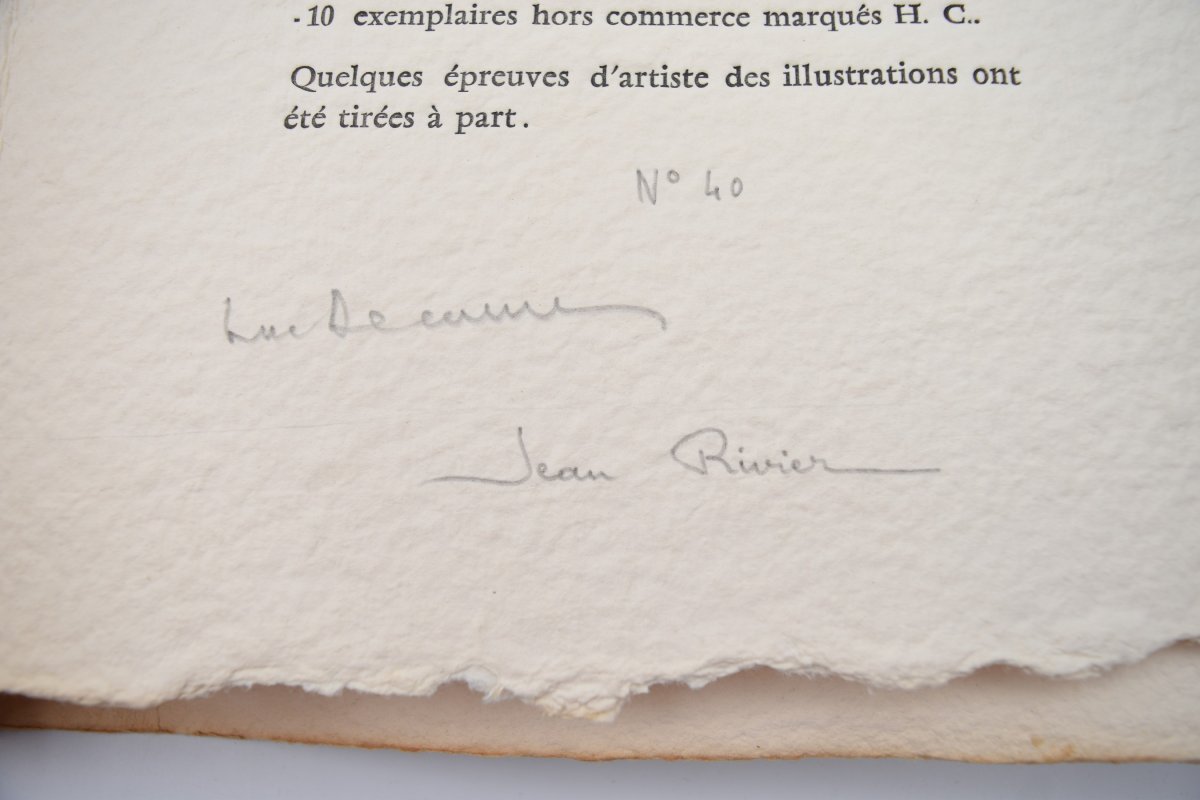 - 10 exemplaires hors commerce marqués H. C..
Quelques épreuves d'artiste des illustrations ont
été tirées à part.
N° 40
Luc Decaunes
Jean Rivier